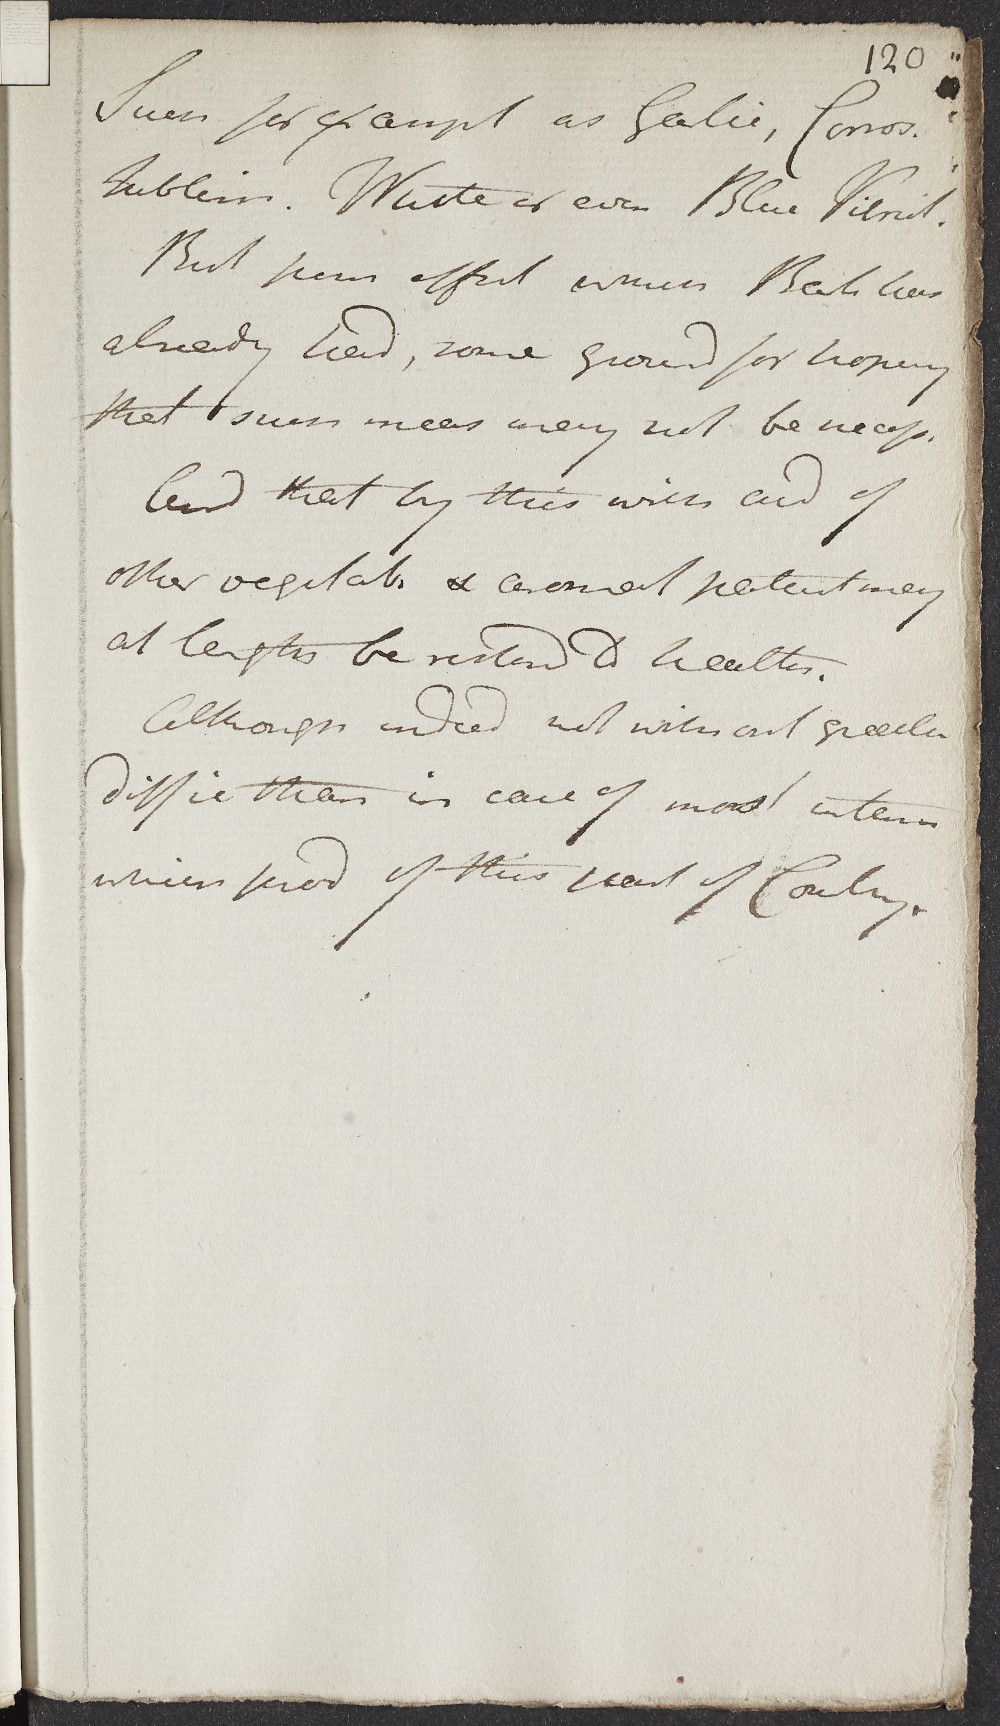 120
Such for exampl as Garlic, Corros.
Sublim. White or even Blue Vitriol.
But from effect which Bark has
already had, some ground for hoping
that such meas may not be necess.
And that by this with aid of
other vegetab. & aromat patient may
at length be restord to health.
Although indeed not without greater
diffic than in case of most interm
which prod of this part of Country.